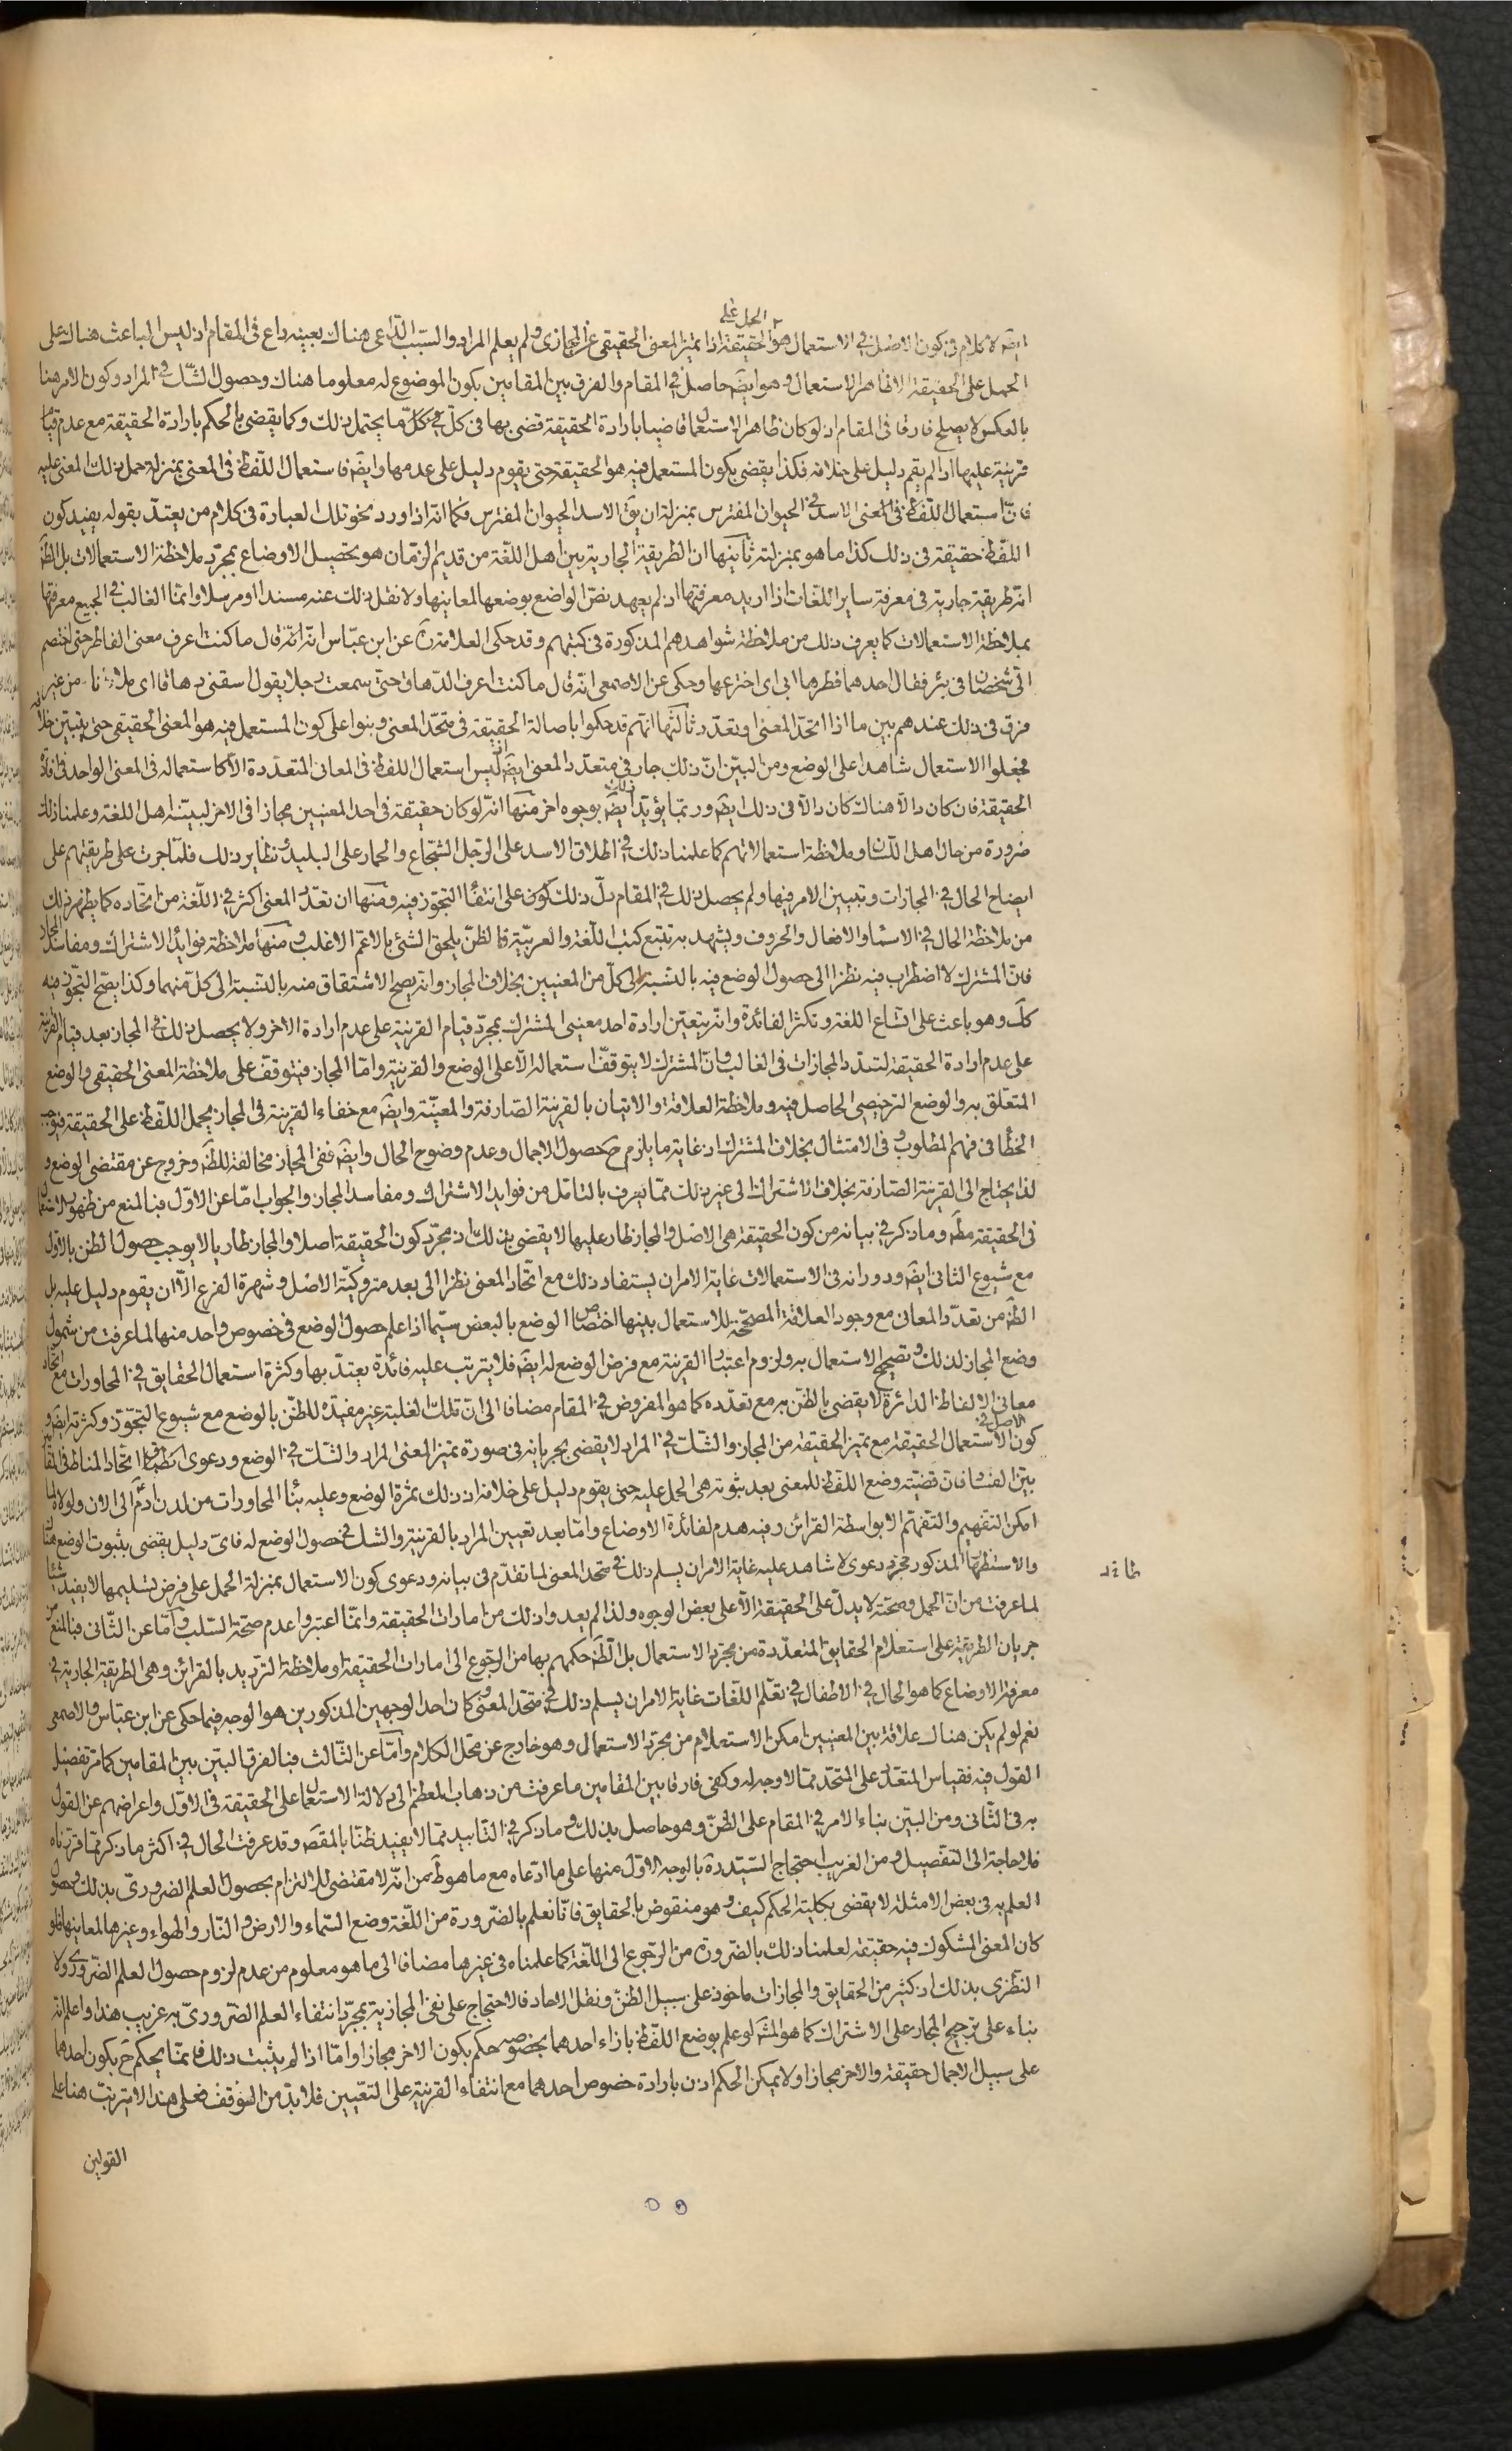 الحمل على
ايضه لا كلام في كون الاصل في الاستعمال هو الحقيقة اذا تميز المعنى الحقيقي عن المجازى ولم يعلم المراد والسبب الداعى هناك بعينه داع في المقام اذ ليس الباعث هناك على
الحمل على الحقيقة الا ظاهر الاستعمال وهو ايضه حاصل في المقام والفرق بين المقامين بكون الموضوع له معلوما هناك وحصول الشك في المراد وكون الامر هنا
بالعكس لا يصلح فارقا في المقام اذ لو كان ظاهر الاستعمال قاضيا بارادة الحقيقة قضى بها في كل ما يحتمل ذلك وكما يقضى بالحكم بارادة الحقيقة مع عدم قيام
قرينة عليها اذا لم يقم دليل على خلافه فكذا يقضى بكون المستعمل فيه هو الحقيقة حتى يقوم دليل على عدمها وايضه فاستعمال اللفظ في المعنى بمنزلة حمل ذلك المعنى عليه
فان استعمال اللفظ في المعنى الاسد في الحيوان المفترس بمنزلة ان يق الاسد الحيوان المفترس فكما انه اذا ورد نحو تلك العبارة في كلام من يعتد بقوله يفيد كون
اللفظ حقيقة في ذلك كذا ما هو بمنزلته ثانيها ان الطريقة الجارية بين اهل اللغة من قديم الزمان هو تحصيل الاوضاع بمجرد ملاحظة الاستعمالات بل الظه
انه طريقة جارية في معرفة ساير اللغات اذا اريد معرفتها اذ لم يعهد نص الواضع بوضعها لمعاينها ولا نقل ذلك عنه مسندا او مرسلا وانما الغالب في الجميع معرفتها
بملاحظة الاستعمالات كما يعرف ذلك من ملاحظة شواهدهم المذكورة في كتبهم وقد حكى العلامة ره عن ابن عباس انه قال ما كنت اعرف معنى الفاطر حتى اختصم
الى شخصان في بئر فقال احدهما فطرها ابى اى اخترعها وحكى عن الاصمعى انه قال ما كنت اعرف الدهاق حتى سمعت رجلا يقول اسقنى دهاقا اى ملانا من غير
فرق في ذلك عندهم بين ما اذا اتحد المعنى او تعدد ثالثها انهم قد حكموا باصالة الحقيقة في متحد المعنى وبنوا على كون المستعمل فيه هو المعنى الحقيقى حتى يتبين خلافه
فجعلوا الاستعمال شاهدا على الوضع ومن البين ان ذلك جار في متعدد المعنى ايضه اذ ليس استعمال اللفظ في المعانى المتعددة الا كاستعماله في المعنى الواحد في افادة
الحقيقة فان كان دالا هناك كان دالا في ذلك ايضه وربما يؤيد ذلك ايضه بوجوه اخر منها انه لو كان حقيقة في احد المعنيين مجازا في الاخر لبينه اهل اللغة وعلمنا ذلك
ضرورة من حال اهل اللسان وملاحظة استعمالاتهم كما علمنا ذلك في اطلاق الاسد على الرجل الشجاع والحمار على البليد ونظاير ذلك فلما جرت على طريقتهم على
ايضاح الحال في المجازات وتبيين الامر فيها ولم يحصل ذلك في المقام دل ذلك على انتفاء التجوز فيه ومنها ان تعدد المعنى اكثر في اللغة من اتحاده كما يظهر ذلك
من ملاحظة الحال في الاسماء والافعال والحروف ويشهد به تتبع كتب اللغة والعربية فالظن يلحق الشئ بالاعم الاغلب ومنها ملاحظة فوايد الاشتراك ومفاسد المجاز
فان المشترك لا اضطراب فيه نظرا الى حصول الوضع فيه بالنسبة الى كل من المعنيين بخلاف المجاز وانه يصح الاشتقاق منه بالنسبة الى كل منهما وكذا يصح التجوز فيه
كك وهو باعث على اتساع اللغة وتكثر الفائدة وانه يتعين ارادة احد معنيى المشترك بمجرد قيام القرينة على عدم ارادة الاخر ولا يحصل ذلك في المجاز بعد قيام القرينة
على عدم ارادة الحقيقة لتعدد المجازات في الغالب وان المشترك لا يتوقف استعماله الا على الوضع والقرينة واما المجاز فيتوقف على ملاحظة المعنى الحقيقى والوضع
المتعلق به والوضع الترخيصى الحاصل فيه وملاحظة العلاقة والاتيان بالقرينة الصارفة والمعينة وايضه مع خفاء القرينة في المجاز يحمل اللفظ على الحقيقة فيوجب
الخطأ في فهم المطلوب وفى الامتثال بخلاف المشترك اذ غاية ما يلزم ح حصول الاجمال وعدم وضوح الحال وايضه ففى المجاز مخالفة للظه وخروج عن مقتضى الوضع و
لذا يحتاج الى القرينة الصارفة بخلاف الاشتراك الى غير ذلك مما يعرف بالتامل من فوايد الاشتراك ومفاسد المجاز والجواب اما عن الاول فبالمنع من ظهور الاستعمال
في الحقيقة مطه وما ذكر في بيانه من كون الحقيقة هى الاصل والمجاز طار عليها لا يقضى بذلك اذ مجرد كون الحقيقة اصلا والمجاز طاريا لا يوجب حصول الظن بالاول
مع شيوع الثانى ايضه ودورانه في الاستعمالات غاية الامر ان يستفاد ذلك مع اتحاد المعنى نظرا الى بعد متروكية الاصل وشهرة الفرع الا ان يقوم دليل عليه بل
الظه من تعدد المعانى مع وجود العلاقة المصححة للاستعمال بينها اختصاص الوضع بالبعض سيما اذا علم حصول الوضع في خصوص واحد منها لما عرفت من شمول
وضع المجاز لذلك وتصحيح الاستعمال به ولزوم اعتبار القرينة مع فرض الوضع له ايضه فلا يترتب عليه فائدة يعتد بها وكثرة استعمال الحقايق في المحاورات مع اتحاد
معانى الالفاظ الدائرة لا يقضى بالظن به مع تعدده كما هو المفروض في المقام مضافا الى ان تلك الغلبة غير مفيدة للظن بالوضع مع شيوع التجوز وكثرته ايضه و
الاصل في
كون الاستعمال الحقيقة مع تميز الحقيقة من المجاز والشك في المراد لا يقضى بجريانه في صورة تميز المعنى المراد والشك في الوضع ودعوى اتحاد المناط في المقامين
بين الفساد فان قضية وضع اللفظ للمعنى بعد ثبوته هى الحمل عليه حتى يقوم دليل على خلافه اذ ذلك ثمرة الوضع وعليه بناء المحاورات من لدن ادم الى الان ولولاه لما
امكن التفهيم والتفهم الا بواسطة القرائن وفيه هدم لفائدة الاوضاع واما بعد تعيين المراد بالقرينة والشك في حصول الوضع له فاى دليل يقضى بثبوت الوضع هناك
والاستظهار المذكور مجرد دعوى لا شاهد عليه غاية الامر ان يسلم ذلك في متحد المعنى لما تقدم في بيانه ودعوى كون الاستعمال بمنزلة الحمل على فرض تسليمها لا يفيد شيئا
لما عرفت من ان الحمل وصحته لا يدل على الحقيقة الا على بعض الوجوه ولذا لم يعدوا ذلك من امارات الحقيقة وانما اعتبروا عدم صحة السلب واما عن الثانى فبالمنع من
جريان الطريقة على استعلام الحقايق المتعددة من مجرد الاستعمال بل الظه حكمهم بها من الرجوع الى امارات الحقيقة وملاحظة الترديد بالقرائن وهى الطريقة الجارية في
معرفة الاوضاع كما هو الحال في الاطفال في تعلم اللغات غاية الامر ان يسلم ذلك في متحد المعنى وكان احد الوجهين المذكورين هو الوجه فيما حكى عن ابن عباس والاصمعى
نعم لو لم يكن هناك علاقة بين المعنيين امكن الاستعلام من مجرد الاستعمال وهو خارج عن محل الكلام واما عن الثالث فبالفرق البين بين المقامين كما مر تفصيل
القول فيه فقياس المتعدد على المتحد مما لا وجه له وكفى فارقا بين المقامين ما عرفت من ذهاب المعظم الى دلالة الاستعمال على الحقيقة في الاول واعراضهم عن القول
به في الثانى ومن البين بناء الامر في المقام على الظن وهو حاصل بذلك وما ذكر في التاييد مما لا يفيد ظنا بالمقصه وقد عرفت الحال في اكثر ما ذكر مما قررناه
فلا حاجة الى التفصيل ومن الغريب احتجاج السيد ره بالوجه الاول منها على ما ادعاه مع ما هو ظه من انه لا مقتضى للالتزام بحصول العلم الضرورى بذلك وحصول
العلم به في بعض الامثلة لا يقضى بكلية الحكم كيف وهو منقوض بالحقايق فانا نعلم بالضرورة من اللغة وضع السماء والارض والنار والهواء وغيرها لمعاينها فلو
كان المعنى المشكوك فيه حقيقة لعلمنا ذلك بالضرورة من الرجوع الى اللغة كما علمناه في غيرها مضافا الى ما هو معلوم من عدم لزوم حصول العلم الضرورى ولا
النظرى بذلك اذ كثير من الحقايق والمجازات ماخوذ على سبيل الظن ونقل الاحاد فالاحتجاج على نفى المجازية بمجرد انتفاء العلم الضرورى به غريب هذا واعلم انه
بناء على ترجيح المجاز على الاشتراك كما هو المشه لو علم بوضع اللفظ بازاء احدهما بخصوصه حكم بكون الاخر مجازا واما اذا لم يثبت ذلك فانما يحكم ح بكون احدهما
على سبيل الاجمال حقيقة والاخر مجازا ولا يمكن الحكم اذن بارادة خصوص احدهما مع انتفاء القرينة على التعيين فلا بد من التوقف فعلى هذا لا يترتب هنا على
القولين